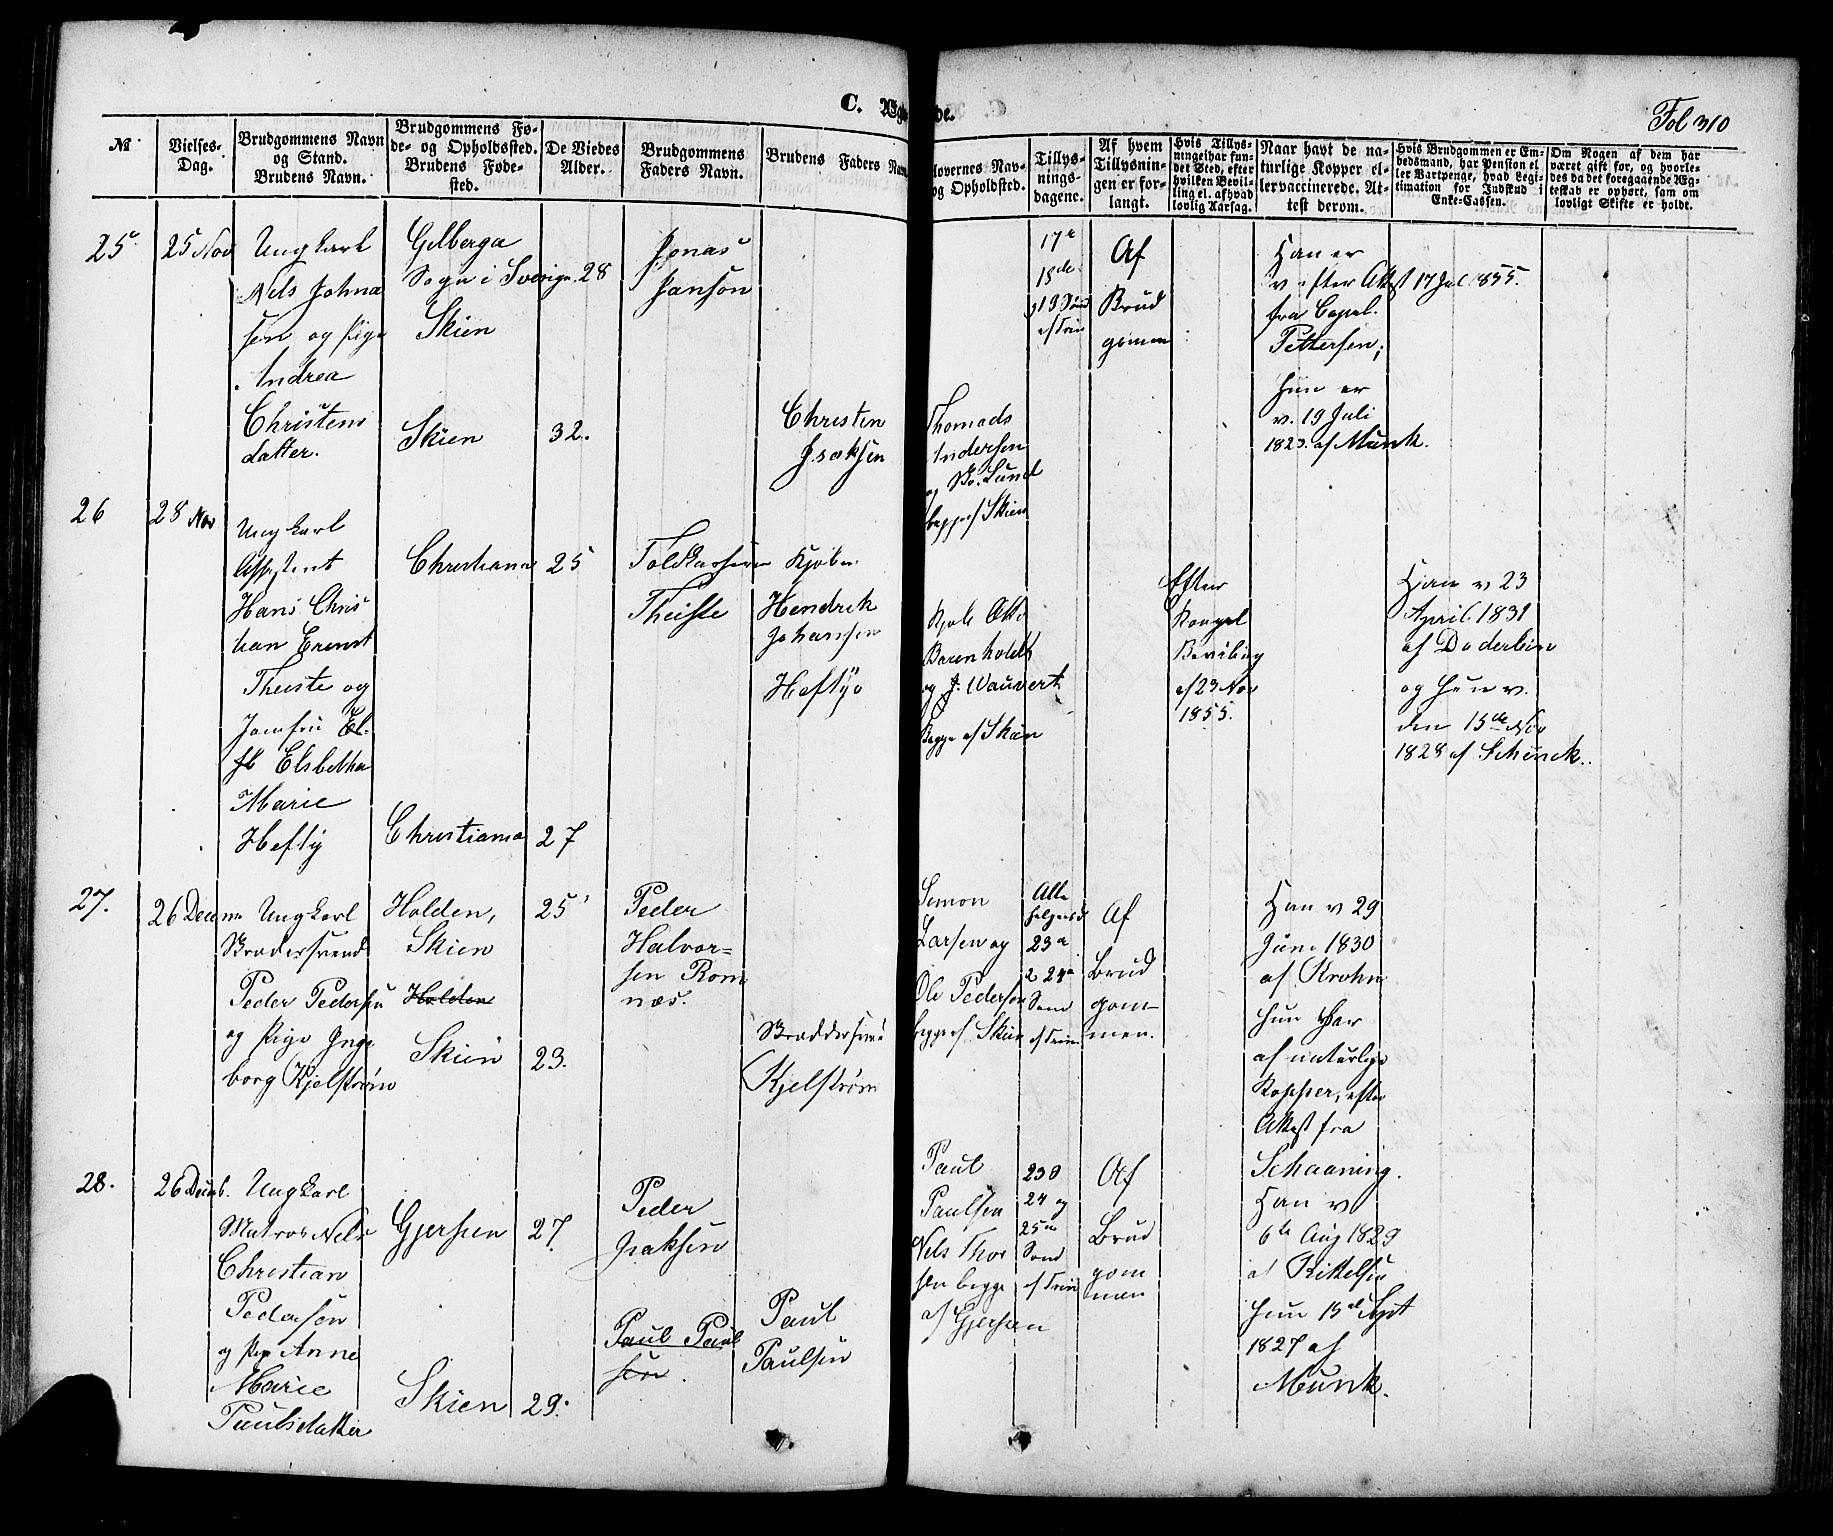 C. Æg
de.
Fol 310
№
Vielses-
Dag.
Brudgommens Navn
og Stand.
Brudens Navn.
Brudgommens Fø-
de- og Opholdssted.
Brudens Føde-
sted.
De Viedes
Alder.
Brudgommens
Faders Navn.
Brudens Faders Navn
lovernes Nav-
og Opholdsted.
Tillys-
nings-
dagene.
Af hvem
Tillysnin-
gen er for-
langt.
Hvis Tillys-
ningei har fun-
det Sted, efter
hvilken Bevil-
ling el. af hvad
lovlig Aarsag.
Naar havt de na-
turlige Kopper el-
ler vaccinerede. At-
test derom.
Hvis Brudgommen er Em-
bedsmand, har Pension el-
ler Vartpenge, hvad Legi-
timation for Indskud i
Enke-Cassen.
Om Nogen af dem har
været gift før, og hvorle-
des da det foregaaende Æg-
teskab er ophørt, samt om
lovligt Skifte er holdt.
25
25 Nov
Ungkarl
Nels Johna
sen og Pige
Andrea
Christens
datter.
Gelberga
Sogn i Sverige
Skien
Skien
28
32.
Jonas
Janson
Christen
Isaksen
Thomads
Andersen
og Bo. Lund
begge af Skien
17de
18de
19 Sønd
af Trin
Af
Brud
gomm
Han er
v. efter Attest 17 Jul. 1855.
fra Capel.
Pettersen;
Hun er
v. 19 Juli
1823. af Munk.
26
28 Nov
Ungkarl
Assistent
Hans Chris
tian Ernst
Theiste og
Jomfru El-
Elsbetha
Marie
Hefty
Christiania
Christiania
25
27
Toldkasserer
Theiste
Kjøbm.
Hendrik
Johansen
Heftye
Kjøb. Otto
Barenholdt
og J. Wauvert
Begge af Skien
Efter
Kongel
Bevilling
af 23 Nov
1855.
Han v 23
April 1831
af Døderlein
og Hun v.
den 15de Nov
1828 af Schenck.
27.
26 Decem
Ungkarl
Brødersvend
Peder Pedersen
og Pige Inge
borg Kjelstrøm
Holden,
Skien
Holden
Skien
25
23.
Peder
Halvor-
sen Rom
næs.
Kjelstrøm
Simon
Larsen og
Ole Pedersen
begge af Skien
Alle
helgensd
23d
& 24d
Sønd
af Trin
Af
Brud
gom-
men.
Han v 29
Juni 1830
af Krohn
Hun har
af naturlige
Kopper, efter
Attest fra
Schaaning.
28.
26 Decmb.
Ungkarl
Matros Nels
Christian
Pedersen
og Pige Anne
Marie
Paulsdatter
Gjerpen
Skien
27.
29.
Peder
Isaksen
Paul Paul
sen.
Paul
Paulsen
Paul
Paulsen
Nels Thor
sen begge
af Gjerpen
23d
24 og
25de
Sønd
af Trin
Af
Brud
gom
men
Han v
6te Aug 1829
af Kittelsen
Hun 15de Sept
1827 af
Munk.